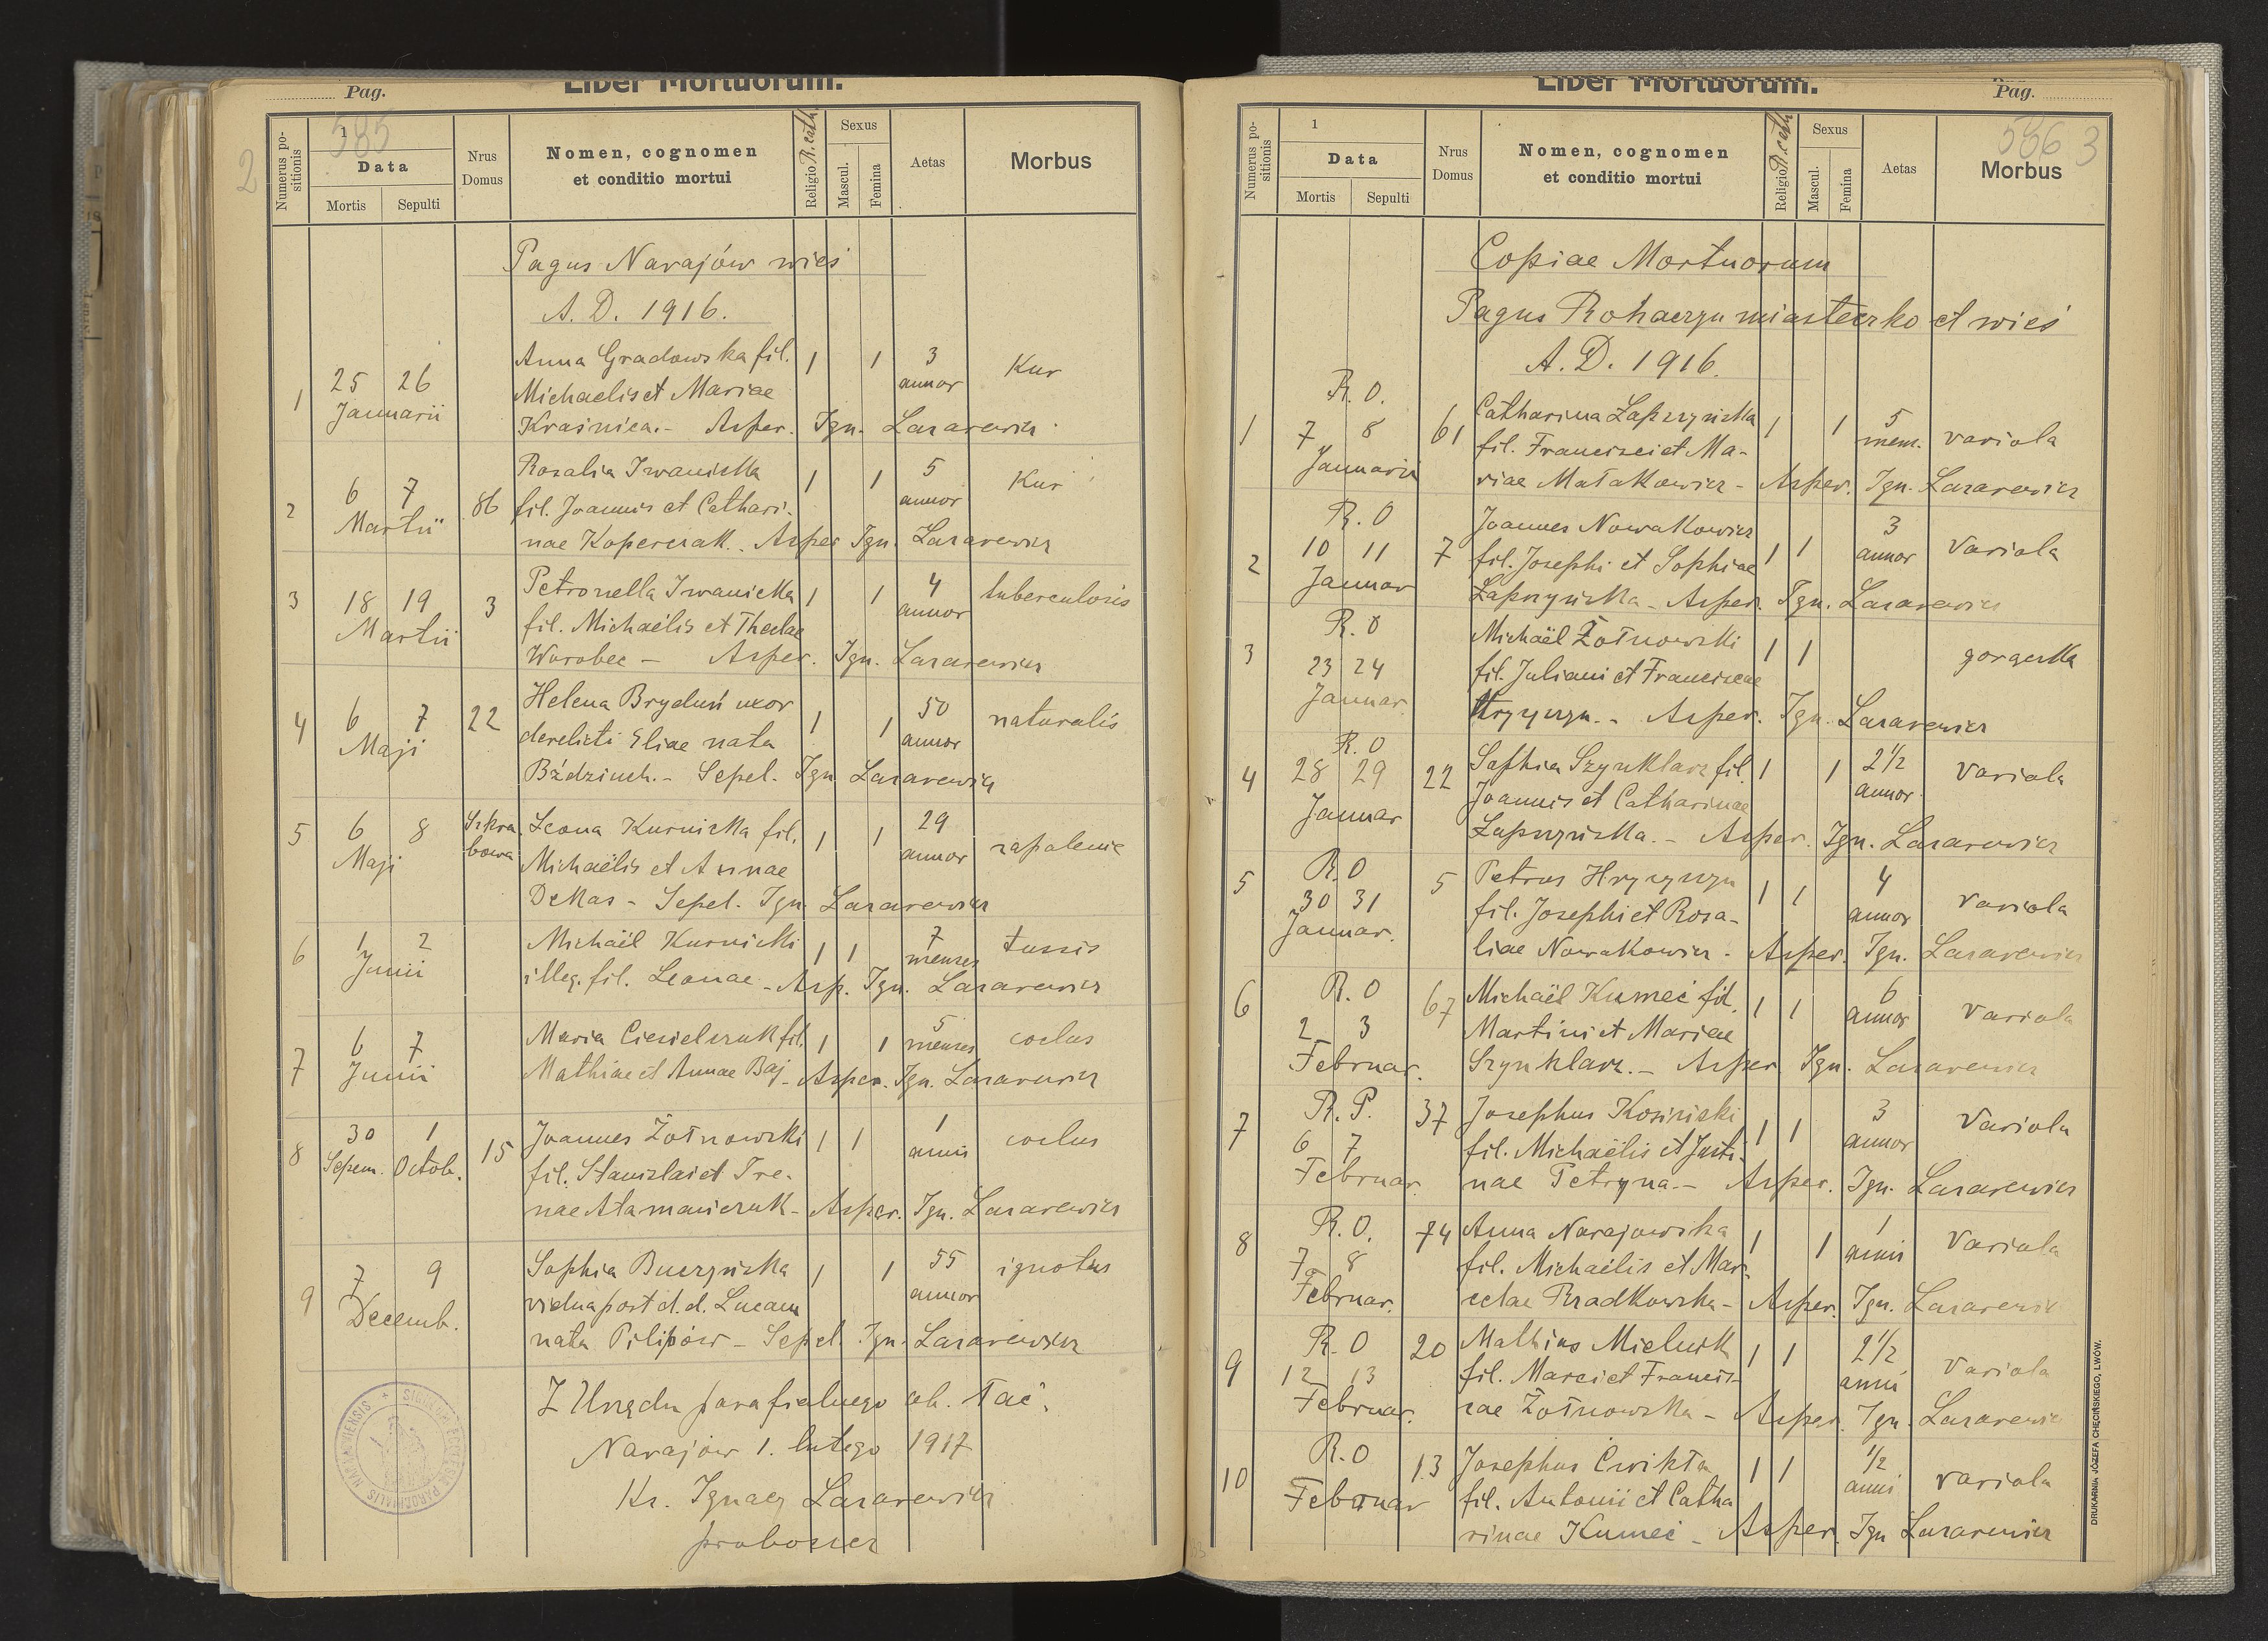 Liber Mortuorum.
Pag.
2
585
Numerus positionis
1
Data
Mortis Sepulti
Nrus Domus
Nomen, cognomen
et conditio mortui
Religio R. cath
Sexus
Mascul.
Femina
Aetas
Morbus
Pagus Narajów wieś
A. D. 1916.
Anna Gradowska fil. 1 1 3
25 26 annor Kur
1 Januarii Michaelis et Mariae
Kraśnica. - Asper. Ign. Lazarewicz
Rosalia Iwanicka 1 1 5 Kur
6 7 annor
2 Martii 86 fil. Joannis et Cathari-
nae Koperczak. Asper Ign. Lazarewicz
Petronella Iwanicka 1 1 4 tuberculosis
3 18 19 3 annor
Martii fil. Michaëlis et Theclae
Worobec - Asper. Ign. Lazarewicz
Helena Bryduń uxor 50
4 6 7 22 1 1 annor naturalis
Maji derelicti Eliae nata
Bździuch. - Sepel. Ign Lazarewicz
5 6 8 Szkra- Leona Kurnicka fil. 1 1 29
Maji bowa annor zapalenie
Michaëlis et Annae
Dekas - Sepel. Ign Lazarewicz
6 1 2 Michaël Kurnicki 1 1 7 tussis
Junii menses
illeg. fil. Leonae - Asp. Ign. Lazarewicz
Maria Ciesielczuk fil. 1 1 5 coelus
7 6 7 menses
Junii Mathiae et Annae Baj - Asper. Ign. Lazarewicz
30 1 Joannes Żołnowski 1 1 1 coelus
8 Sepem. Octob. 15 anni
fil. Stanislai et Ire-
nae Atamańczuk - Asper. Ign. Lazarewicz
7 9 Sophia Buczyńska 1 1 55 ignotus
9 Decemb. annor
vidua post d. d. Lucam
nata Pilipów - Sepel. Ign. Lazarewicz
Z Urzędu parafialnego ob. łać.
Narajów 1. lutego 1917
Ks. Ignacy Lazarewicz
proboszcz
Liber Mortuorum.
Pag.
586 3
Numerus positionis
1
Data
Mortis Sepulti
Nrus Domus
Nomen, cognomen
et conditio mortui
Religio R. cath
Sexus
Mascul.
Femina
Aetas
Morbus
Copiae Mortuorum
Pagus Rohaczyn miasteczko et wieś
A. D. 1916.
R. O.
1 7 8 61 Catharina Łapszyńska 1 1 5 variola
Januarii fil. Francisci et Ma- mem.
riae Matakowicz - Asper. Ign. Lazarewicz
R. O Joannes Nowakowicz 3
2 10 11 7 fil. Josephi et Sophiae 1 1 annor Variola
Januar Łapszyńska - Asper. Ign. Lazarewicz
R. O Michaël Żołnowski 1 1
3 23 24 fil. Juliani et Franciscae gorączka
Januar. Hryczyn. - Asper. Ign. Lazarewicz
R. O
4 28 29 22 Sophia Szynklarz fil. 1 1 2 1/2 Variola
Januar Joannis et Catharinae annor
Łapszyńska. - Asper. Ign. Lazarewicz
R. O Petrus Hryczyn 4
5 30 31 5 fil. Josephi et Rosa- 1 1 annor Variola
Januar. liae Nowakowicz - Asper. Ign. Lazarewicz
6 R. O 67 Michaël Kumeć fil. 1 1 6 Variola
2 3 Martini et Mariae annor
Februar. Szynklarz. - Asper Ign. Lazarewicz
R. P. 37 Josephus Kosiński 3
7 6 7 fil. Michaëlis et Justi- 1 1 annor Variola
Februar. nae Petryna. - Asper. Ign. Lazarewicz
R. O. 74 Anna Narajowska 1 1 1 Variola
8 7 8 fil. Michaëlis et Mar- anni
Februar. celae Rzadkowska - Asper. Ign. Lazarewicz
R. O 20 Mathias Mielnik 1 1 2 1/2
9 12 13 fil. Marci et Francis- anni Variola
Februar. cae Żołnowska - Asper. Ign. Lazarewicz
R. O 13 Josephus Ćwikła 1 1 1/2
10 Februar fil. Antonii et Catha anni variola
rinae Kumeć - Asper. Ign Lazarewicz
DRUKARNIA JÓZEFA CHĘCIŃSKIEGO, LWÓW.